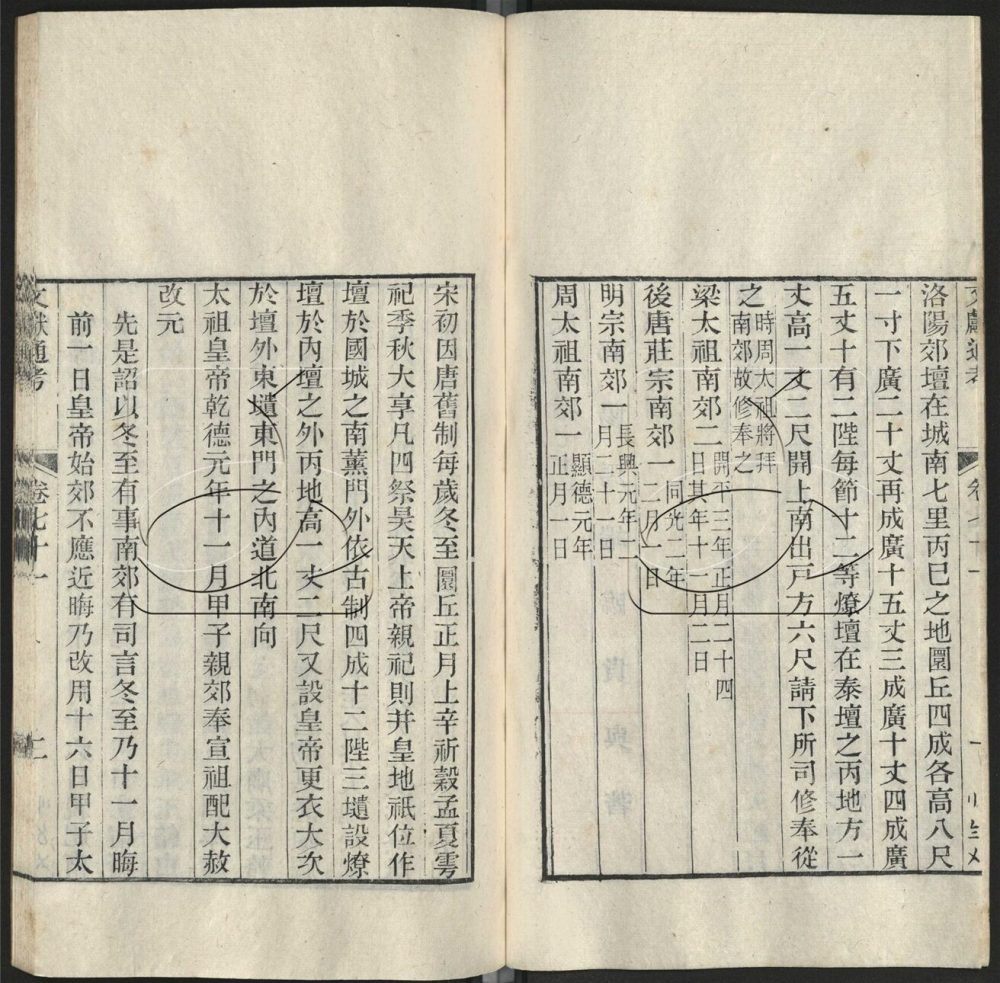 洛陽郊壇在城南七里丙巳之地圜丘四成各高八尺
一寸下廣二十丈再成廣十五丈三成廣十丈四成廣
五丈十有二陛每節十二等燎壇在泰壇之丙地方一
丈高一丈二尺開上南出戸方六尺請下所司修奉從
之時周太祖將拜
南郊故修奉之
梁太祖南郊二開平三年正月二十四
日其年十一月二日
後唐莊宗南郊一同光二年
二月一日
明宗南郊一長興元年二
月二十一日
周太祖南郊一顯德元年
正月一日
宋初因唐舊制每歲冬至圜丘正月上辛祈穀孟夏雩
祀季秋大享凡四祭昊天上帝親祀則并皇地祇位作
壇於國城之南薰門外依古制四成十二陛三壝設燎
壇於內壇之外丙地高一丈二尺又設皇帝更衣大次
於壇外東壝東門之內道北南向
太祖皇帝乾德元年十一月甲子親郊奉宣祖配大赦
改元
先是詔以冬至有事南郊有司言冬至乃十一月晦
前一日皇帝始郊不應近晦乃改用十六日甲子太
文獻通考 卷七十一 二